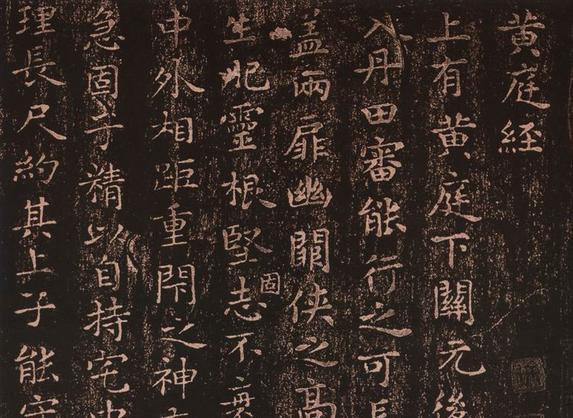 黄庭経
上有黄庭下關元後
入丹田審能行之可長
盖兩扉幽闕俠之高
生肥靈根堅固志不衰
中外相距重閇之神
急固子精以自持宅中
理長尺約其上子能守